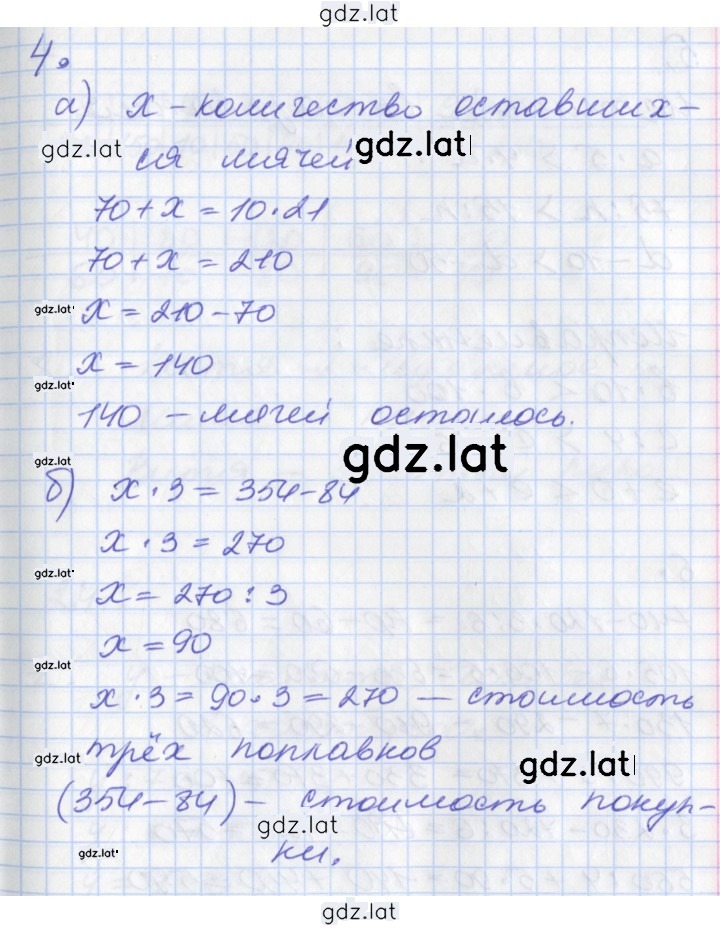 gdz.lat
4.
а) x - количество оставших-
gdz.lat ся мячей gdz.lat
70 + x = 10 · 21
70 + x = 210
gdz.lat x = 210 - 70
x = 140
gdz.lat
140 - мячей осталось.
gdz.lat gdz.lat
б) x · 3 = 354 - 84
x · 3 = 270
gdz.lat
x = 270 : 3
x = 90
gdz.lat
x · 3 = 90 · 3 = 270 — стоимость
gdz.lat трёх поплавков gdz.lat
(354 - 84) - стоимость покуп-
gdz.lat
gdz.lat ки.
gdz.lat